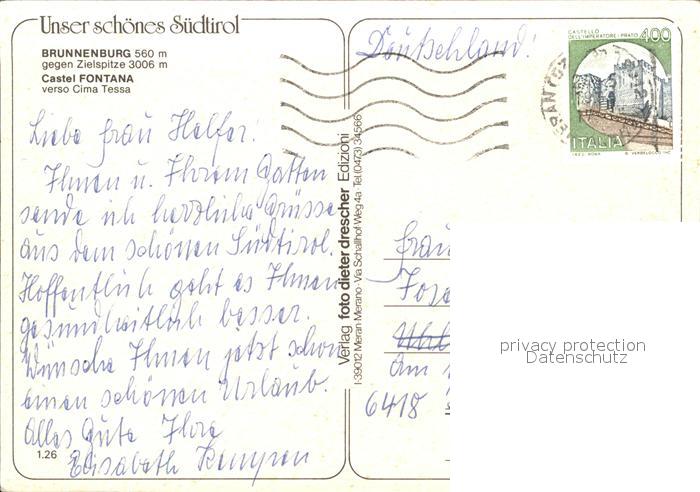 Unser schönes Südtirol
BRUNNENBURG 560 m
gegen Zielspitze 3006 m
Castel FONTANA
verso Cima Tessa
Liebe Frau Helfer!
Ihnen u. Ihrem Gatten
sende ich herzliche Grüsse
aus dem schönen Südtirol.
Hoffentlich geht es Ihnen
gesundheitlich besser.
Wünsche Ihnen jetzt schon
einen schönen Urlaub.
Alles Gute Ihre
Elisabeth
1.26
Verlag foto dieter drescher Edizioni
I-39012 Meran Merano-Via Schallhof-Weg 4a-Tel.(0473) 34566
Deutschland!
CASTELLO
DELL'IMPERATORE-PRATO 400
ITALIA
Frau
Am
6418
privacy protection
Datenschutz